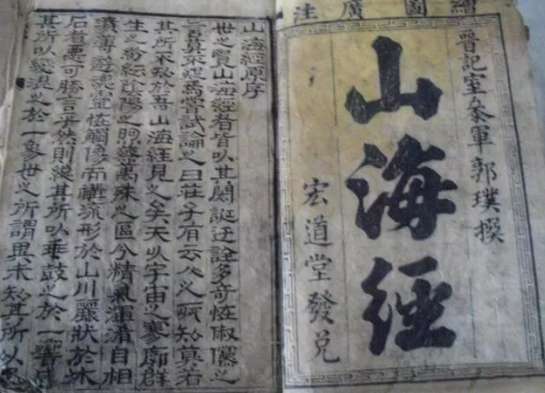 繪圖廣注
晉記室叅軍郭璞撰
山海經
宏道堂發兌
山海經原序
世之覽山海經者皆以其閎誕迂誇多奇怪俶儻之
言莫不疑焉嘗試論之曰莊子有云人之所知莫若
其所不知於吾山海經見之矣夫以宇宙之寥廓群
生之紛紜陰陽之煦蒸萬殊之區分精氣渾淆自相
濆薄遊魂靈怪觸像而構流形於山川麗狀於木
石者惡可勝言乎然則總其所以乖鼓之於一響成
其所以變混之於一象世之所謂異未知其所以異